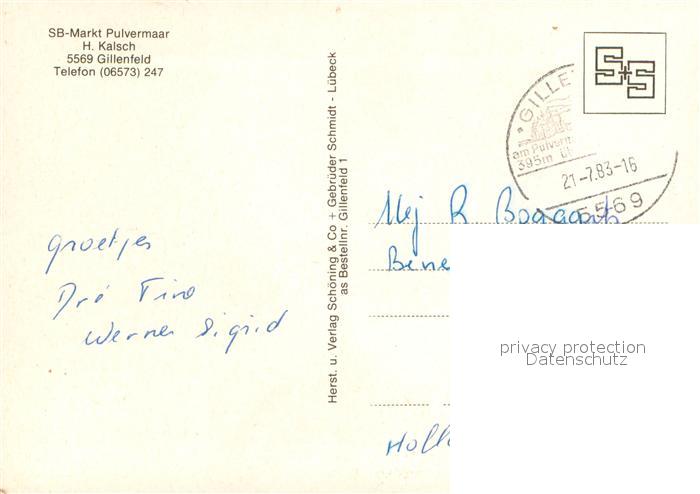 SB-Markt Pulvermaar
H. Kalsch
5569 Gillenfeld
Telefon (06573) 247
groetjes
Dré Tino
Werner Sigrid
Herst. u. Verlag Schöning & Co + Gebrüder Schmidt - Lübeck
as Bestellnr. Gillenfeld 1
S+S
GILLE
am Pulverm
395m ü
21-7.83-16
5569
Mej R. Bogaarts
Bene
Holl
privacy protection
Datenschutz